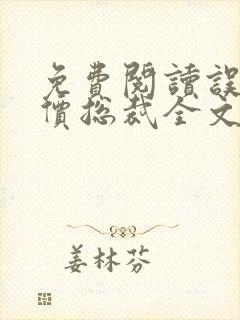 免費閱讀誤
價總裁全文
姜林芬